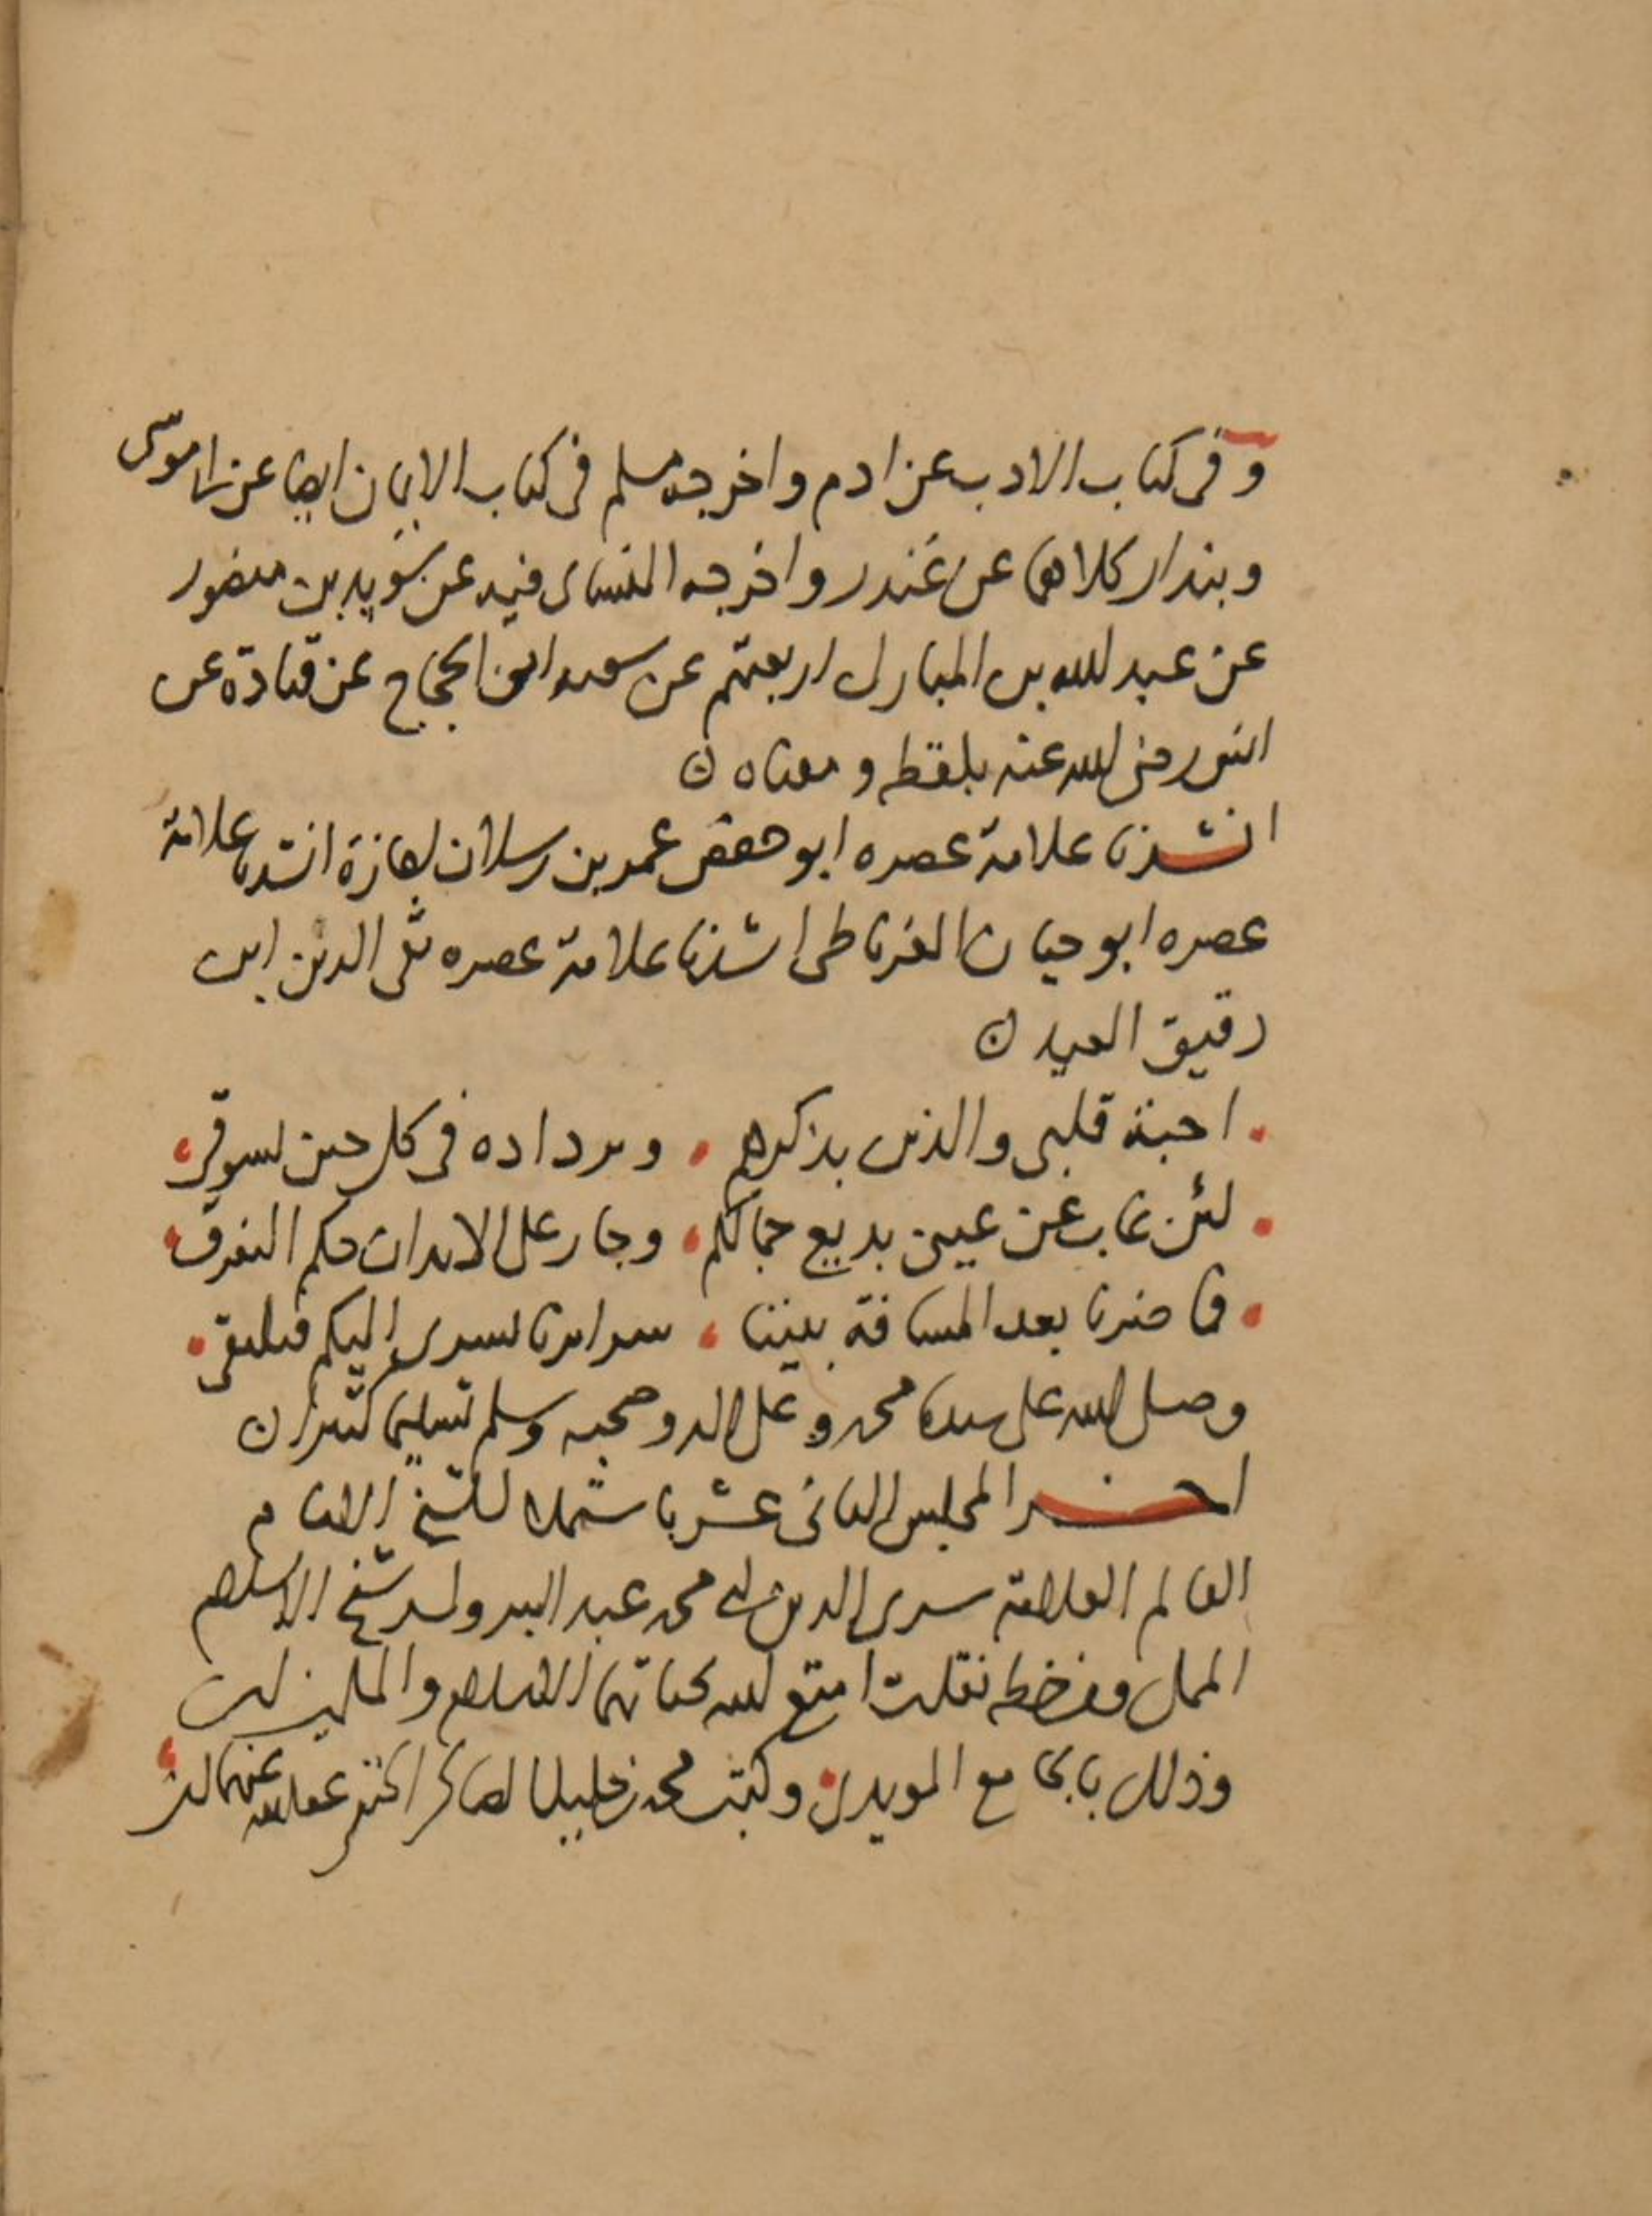 وفى كتاب الادب عن ادم واخرجه مسلم فى كتاب الايمان ايضا عن ابى موسى
وبندار كلاهما عن غندر واخرجه النساى فيه عن سويد بن منصور
عن عبد الله بن المبارك اربعتهم عن شعبه ابن الحجاج عن قتادة عن
انس رضى الله عنه بلفظه ومعناه ن
انشدنا علامة عصره ابو حفص عمر بن رسلان اجازة انشدنا علامة
عصره ابو حيان الغرناطى انشدنا علامة عصره تقى الدين ابن
دقيق العيد ن
احبة قلبى والذين بذكرهم وترداده فى كل حين تشوقى
لئن غاب عن عينى بديع جمالكم وجار على الابدان حكم التفرق
فما ضرنا بعد المسافة بيننا سرايرنا تسرى اليكم فنلتقى
وصلى الله على سيدنا محمد وعلى اله وصحبه وسلم تسليما كثيرا ن
اخر المجلس الثانى عشر باستملا الشيخ الامام
العالم العلامة سرى الدين ابى محمد عبد البر ولد شيخ الاسلام
المملى ومن خطه نقلت امتع الله بحياتهما الاسلام والمسلمين امين
وذلك بالجامع المويدى وكتب محمد بن خليل عفا الله عنهما امين